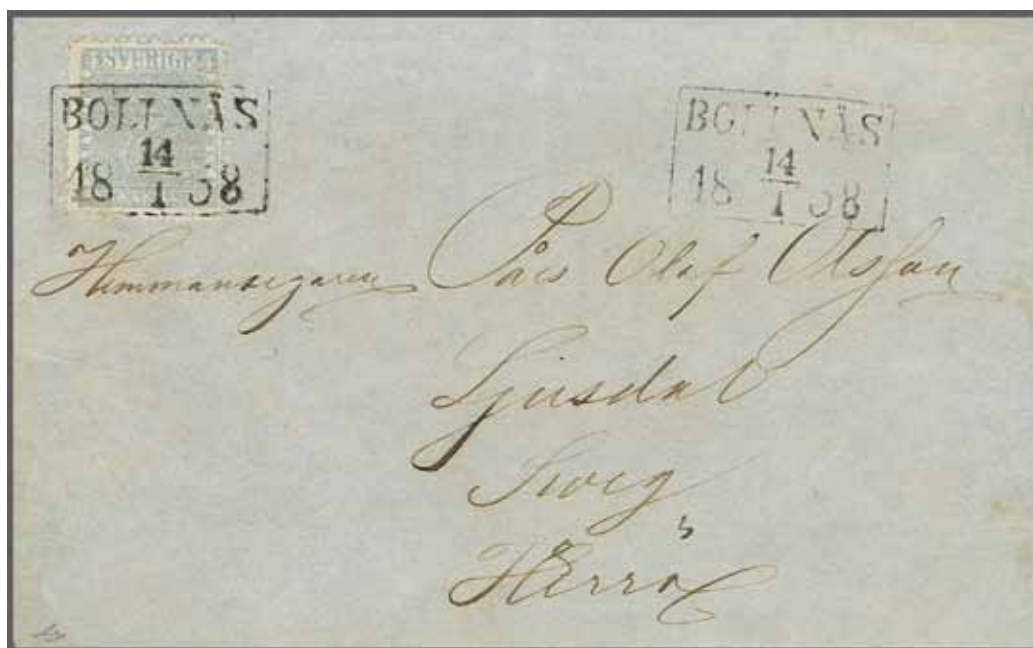 SVERIGE
BOLLNÄS
14
18 1 58
BOLLNÄS
14
18 1 58
Hemmansegaren Pårs Olof Olsson
Ljusdal
Sweg
Herrö